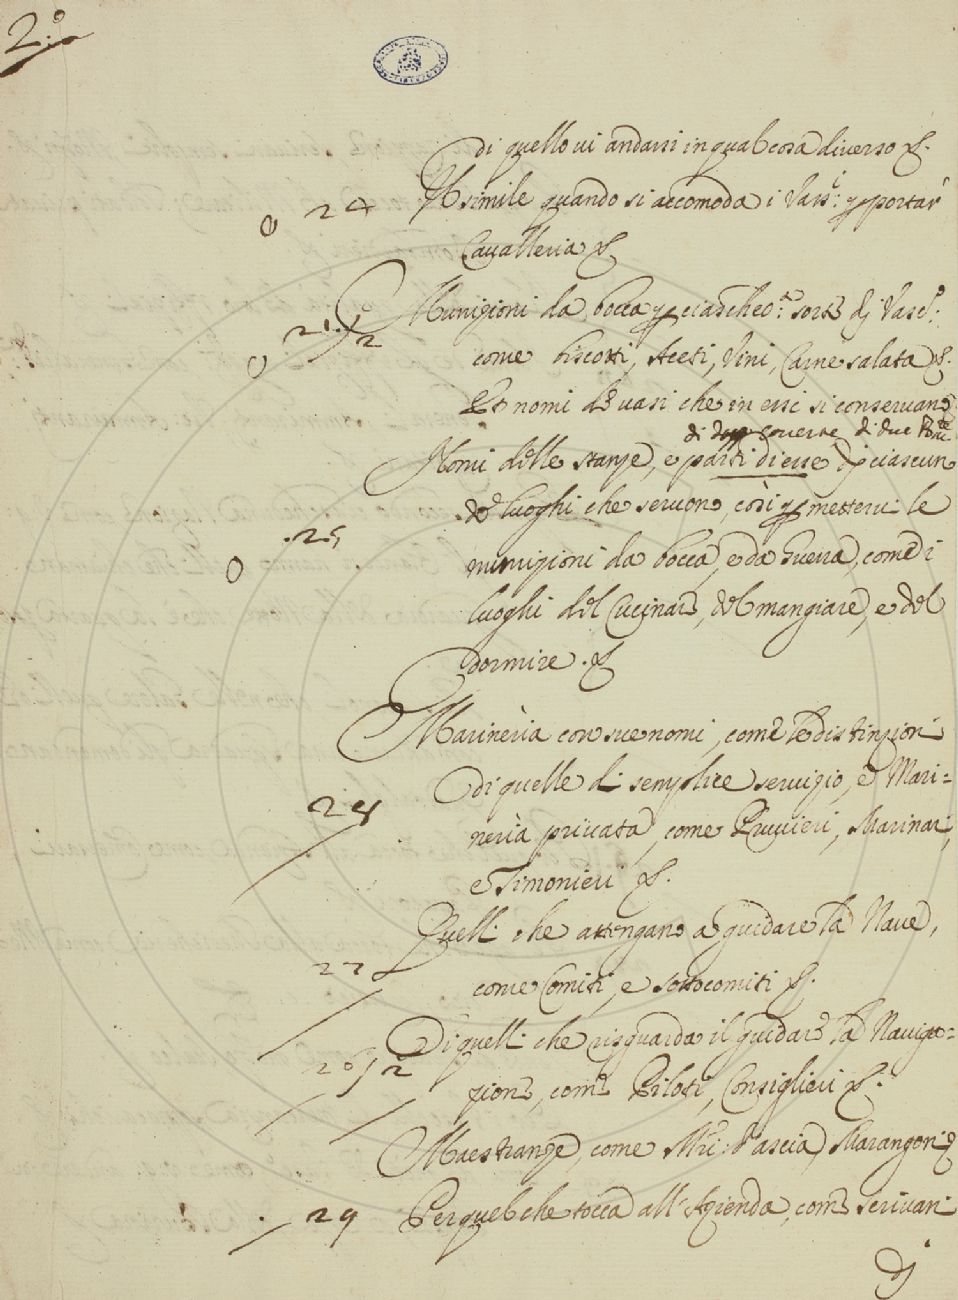 2.o
di quello ui andassi in qual cosa diverso &.
24 Il simile quando si accomoda i Vasc.i: per portar
Cavalleria &.
Munizioni da bocca per ciasched.a: sorte di Vasc.i:
come biscotti, Aceti, Vini, Carne salata &.
Et nomi de vasi che in essi si conservano
di due
Nomi delle stanze, e parti di esse di ciascun
25 de luoghi che servono, così per mettervi le
munizioni da bocca, e da Guerra, come di
luoghi del Cucinare, del mangiare, e del
dormire. &
Marineria con sue nomi, come le distinzioni
di quelle di semplice servizio, e Mari=
28 neria privata, come Pruvieri, Marinari,
e Timonieri &.
Quelli che attengano a guidare la Nave,
27 come Comiti, e sottocomiti &.
Di quelli che risguarda il guidare la Naviga=
zione, come Piloti, Consiglieri &.
Maestranze, come Mri: d'ascia, Marangoni &
29 Per quel che tocca all'Azienda, come scrivani
di